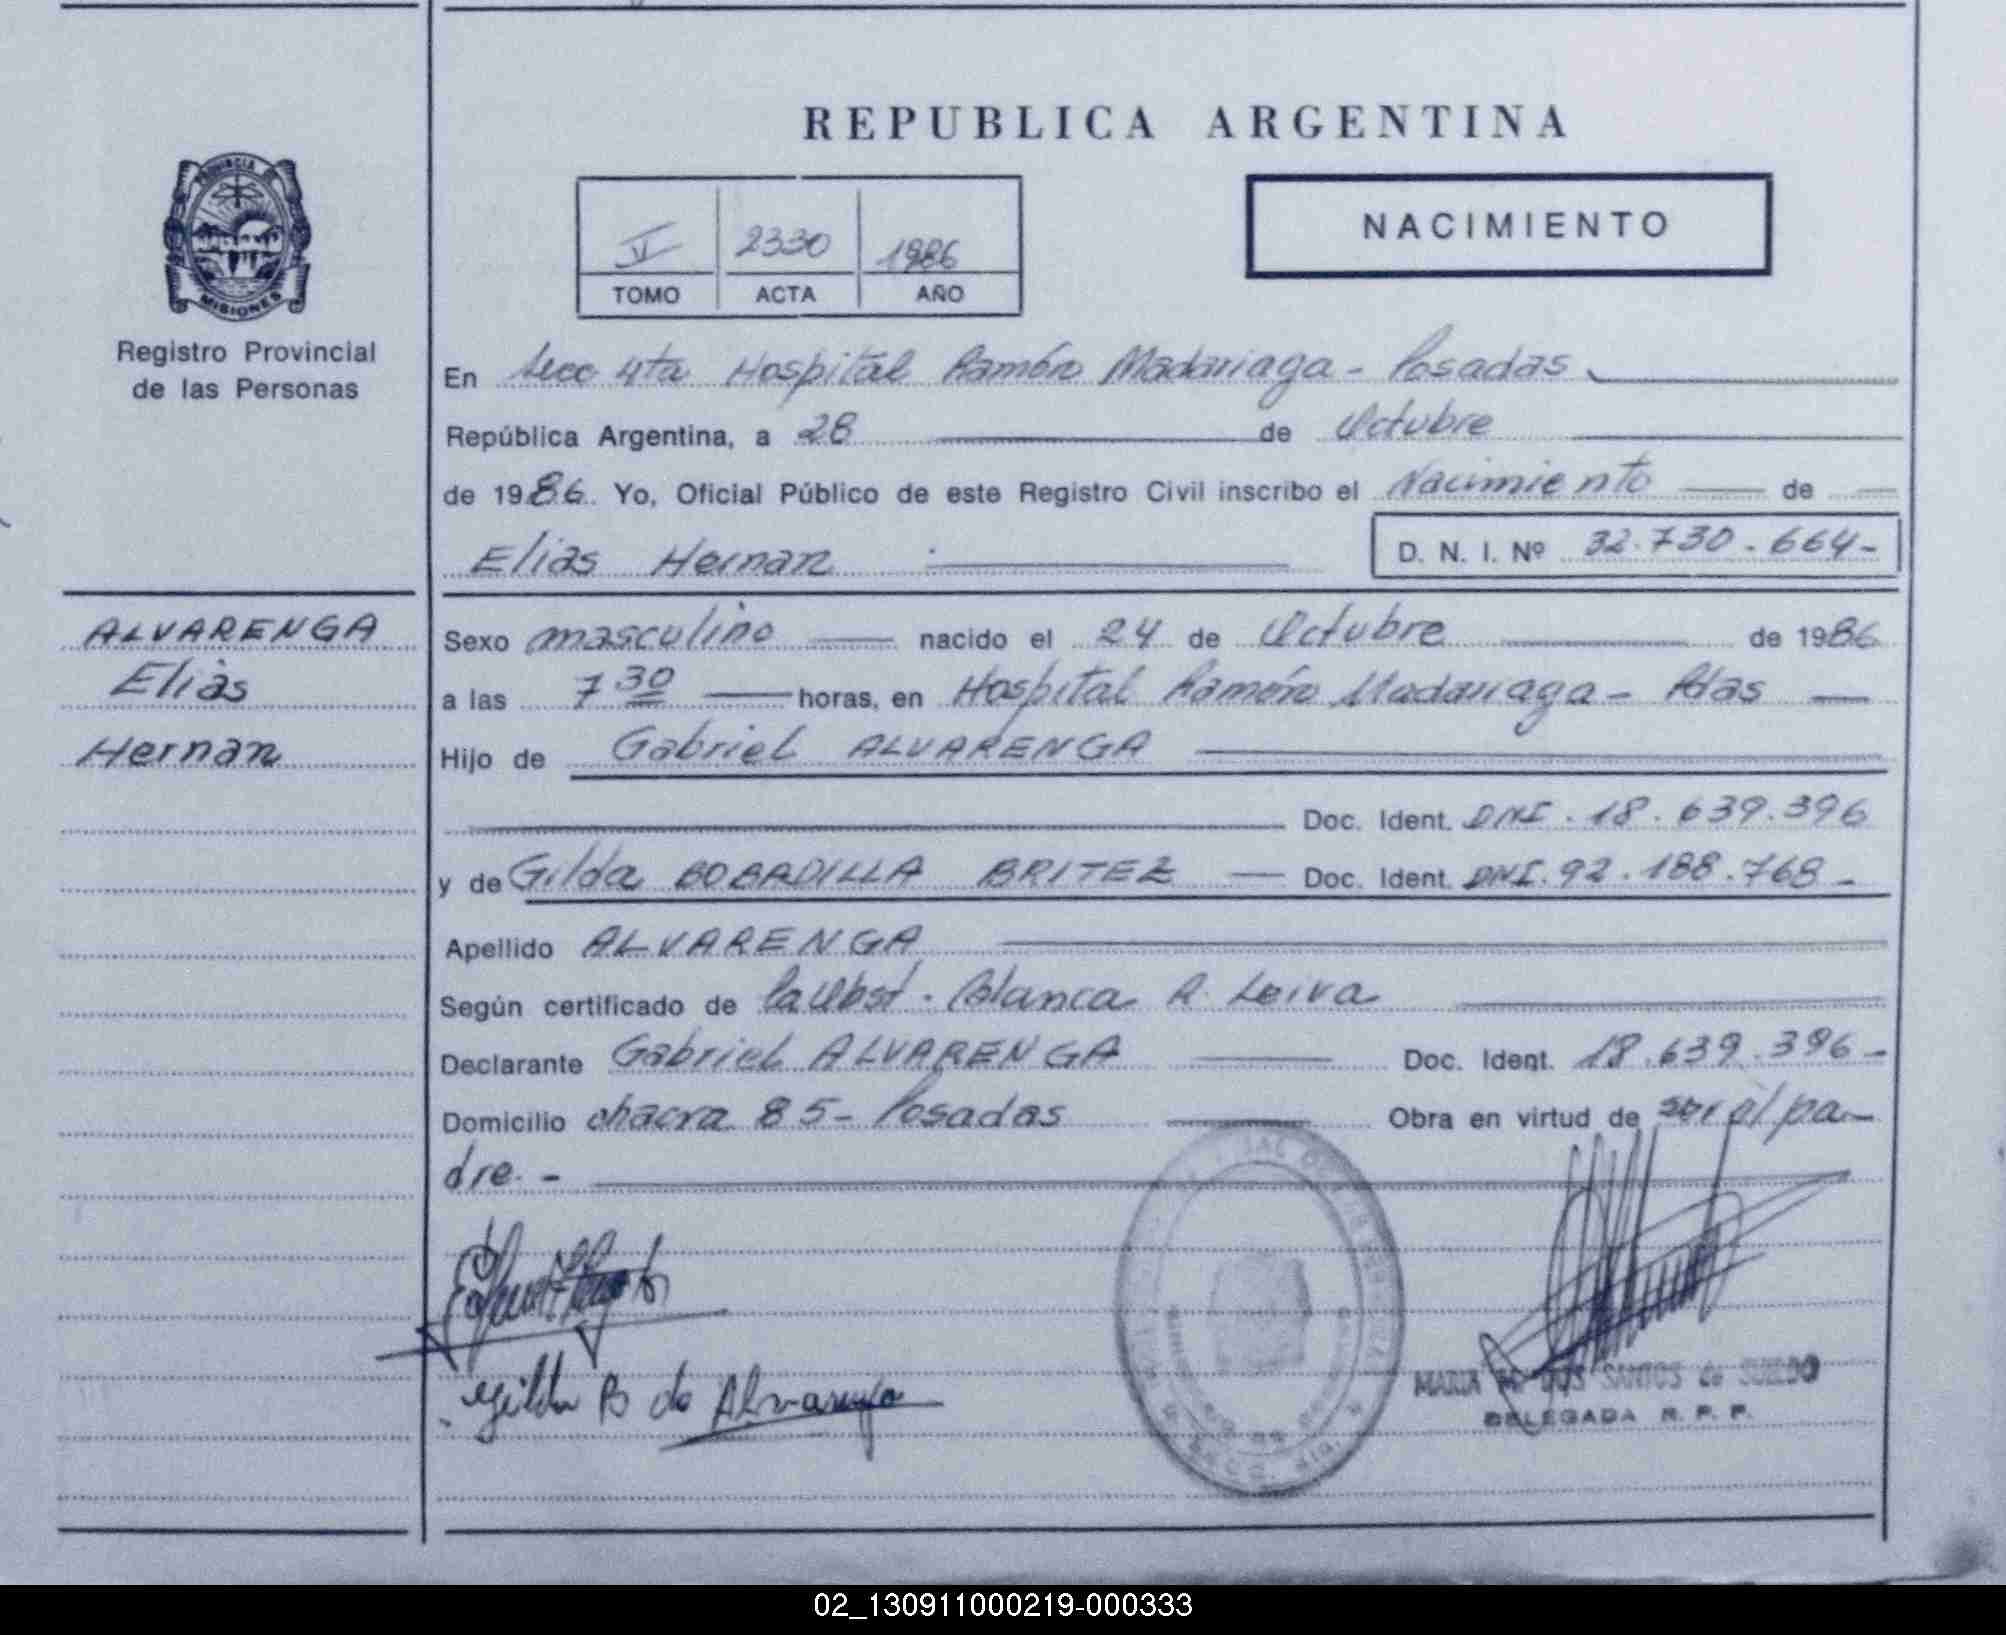 REPUBLICA ARGENTINA
PROVINCIA DE
MISIONES
Registro Provincial
de las Personas
V 2330 1986
TOMO ACTA AÑO
NACIMIENTO
En Secc 4ta Hospital Ramón Madariaga - Posadas
República Argentina, a 28 de Octubre
de 1986. Yo, Oficial Público de este Registro Civil inscribo el Nacimiento de
Elias Hernan D. N. I. Nº 32.730.664-
ALVARENGA
Elias
Hernan
Sexo masculino nacido el 24 de Octubre de 1986
a las 7 30 horas, en Hospital Ramón Madariaga - Pdas
Hijo de Gabriel ALVARENGA
Doc. Ident. DNI. 18.639.396
y de Gilda BOBADILLA BRITEZ Doc. Ident. DNI. 92.188.768-
Apellido ALVARENGA
Según certificado de la Obst. Blanca R. Leiva
Declarante Gabriel ALVARENGA Doc. Ident. 18.639.396-
Domicilio chacra 85- Posadas Obra en virtud de ser el pa-
dre.-
Gilda B de Alvarenga
MARIA DOS SANTOS de SUELDO
DELEGADA R. P. P.
02_130911000219-000333